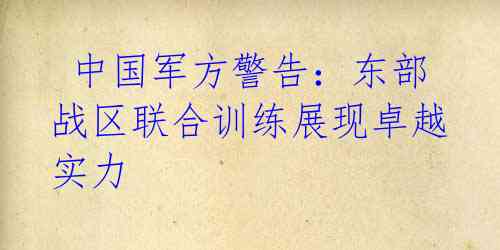 中国军方警告：东部
战区联合训练展现卓越
实力